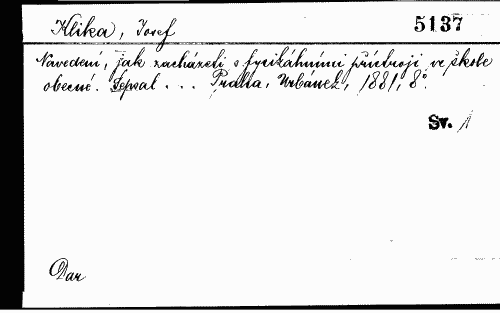 Klika, Josef 5137
Navedení, jak zacházeti s fysikálními přístroji ve škole
obecné. Sepsal ... Praha, Urbánek, 1881, 8°.
Sv. 1
Dar